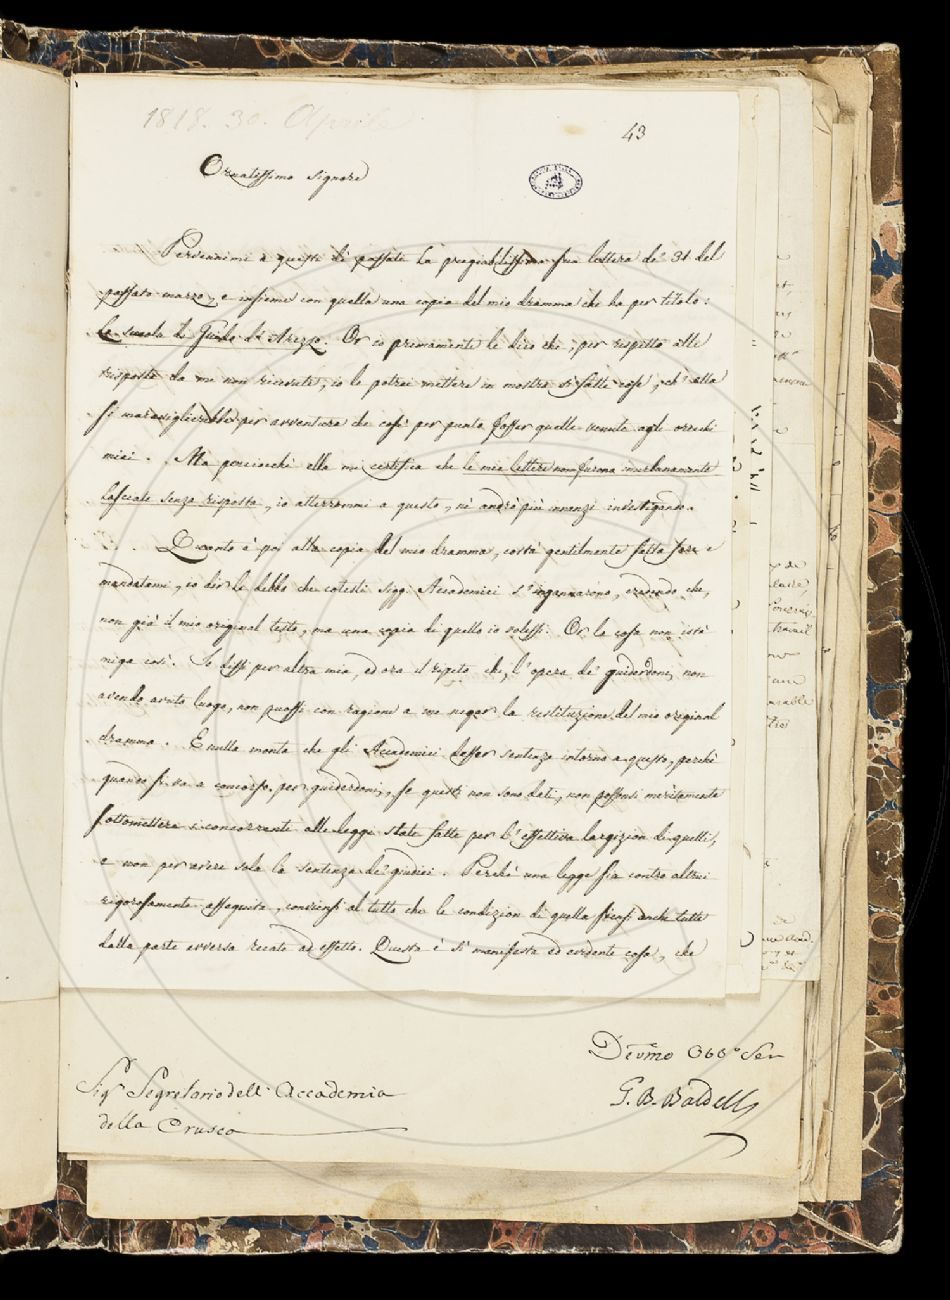 1818. 30. Aprile
43
Ornatissimo Signore
Pervennimi a questi dì passati la pregiatissima sua lettera de' 31 del
passato marzo, e insieme con quella una copia del mio dramma che ha per titolo:
La scuola di Guido d'Arezzo. Or io primamente le dico che, per rispetto alle
risposte da me non ricevute, io le potrei mettere in mostra sì fatte cose, ch'ella
si maraviglierebbe per avventura che così per punto fosser quelle venute agli orecchi
miei. Ma perciocchè ella mi certifica che le mie lettere non furono inurbanamente
lasciate senza risposta, io atterrommi a questo, nè andrò più innanzi investigando.
Quanto è poi alla copia del mio dramma, costà gentilmente fatta fare e
mandatami, io dir le debbo che cotesti Sigg. Accademici s'ingannarono, credendo che,
non già il mio original testo, ma una copia di quello io volessi. Or la cosa non istà
miga così. Io dissi per altra mia, ed ora il repito che, l'opera de' guiderdoni, non
avendo avuto luogo, non puossi con ragione a me negar la restituzione del mio original
dramma. E nulla monta che gli Accademici desser sentenza intorno a questo, perchè
quando si va a concorso per guiderdoni, se questi non sono dati, non possonsi meritamente
sottomettere i concorrenti alle leggi state fatte per l'effettiva largizion di quelli,
e non per avere sola la sentenza de' giudici. Perchè una legge sia contro altrui
rigorosamente esseguita, conviensi al tutto che le condizion di quella siensi anche tutte
dalla parte avversa recate ad effetto. Questa è sì manifesta ed evidente cosa, che
Devmo Obbo Ser
G. B. Baldelli
Sigr Segretario dell' Accademia
della Crusca